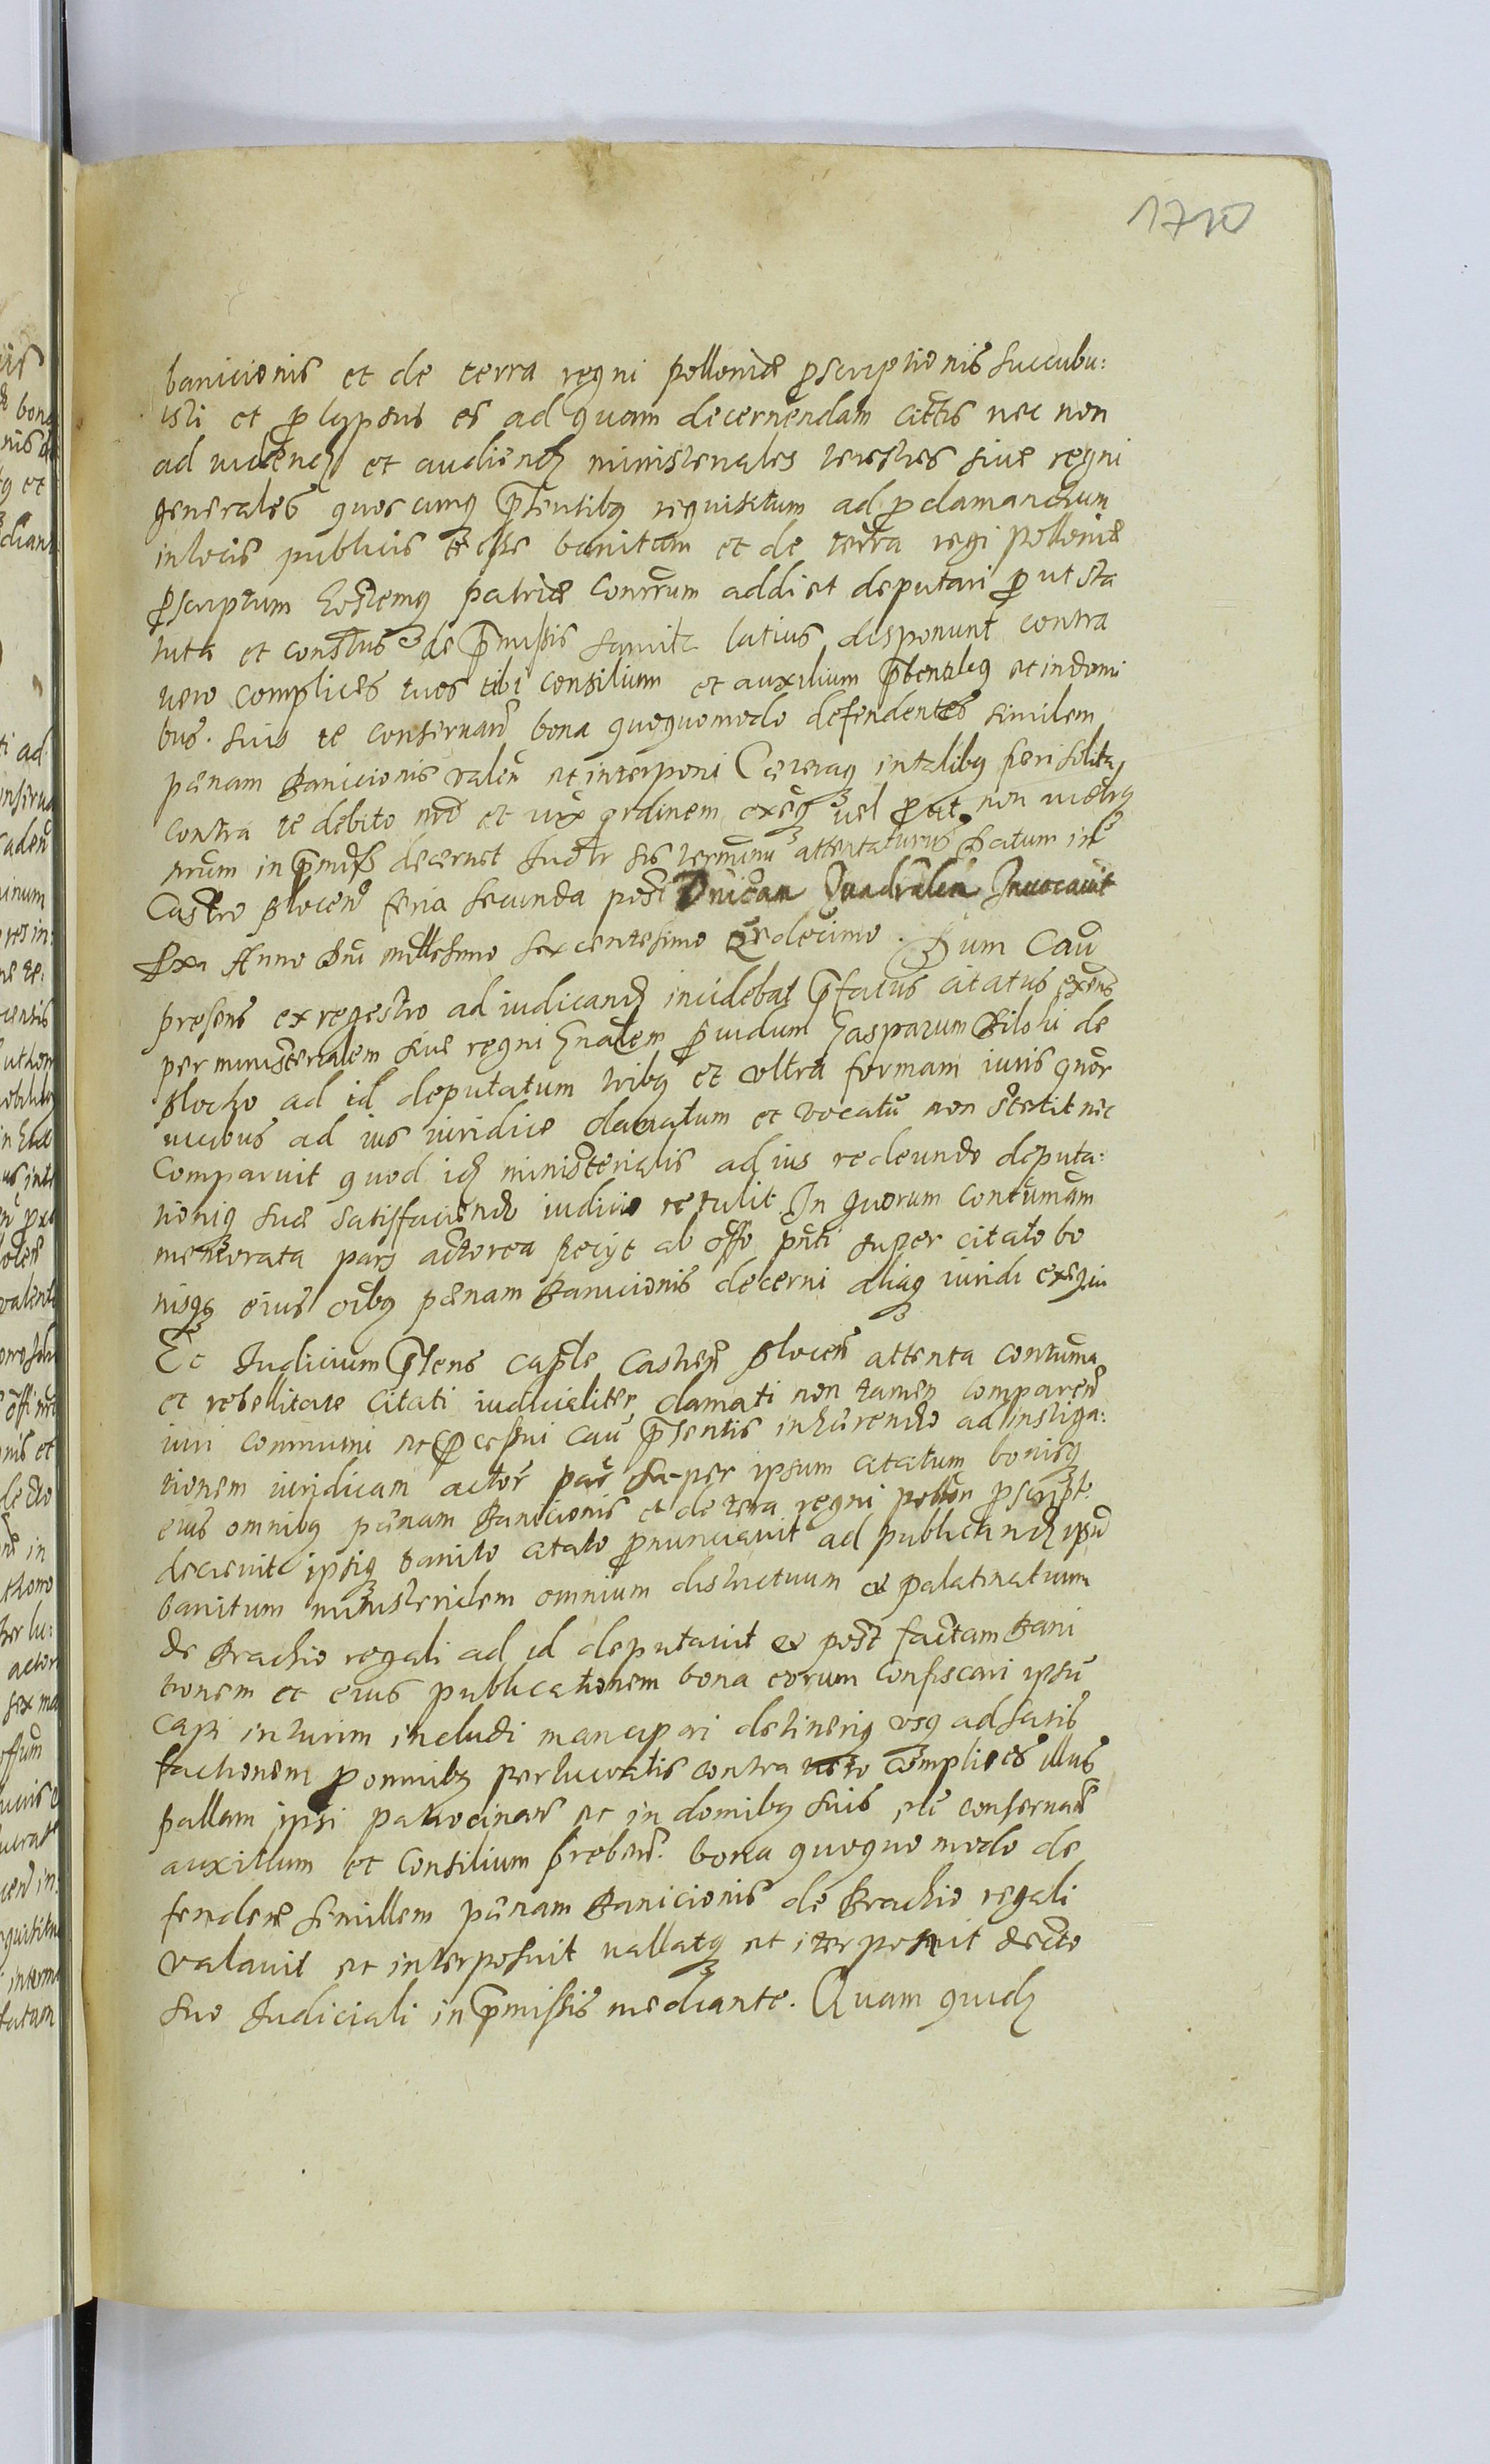 1710
banicionis et de terra regni polloniæ pscriptionis succubu:
isti et plapsus es ad quam decernendam citris nec non
ad videnď et audienď ministeriales terestres sive regni
generales quoscunq pntibq requisitum ad pclamandum
in locis publicis te esse banitum et de terra regi polloniæ
pscriptum hostemq patriæ comunem addi et deputari put sta
tuta et constus de pmissis latius disponunt contra
vero complices tuos tibi consilium et auxilium pbentesq et in domi
bus suis te conservan bona quoquomodo defendentes similem
pænam Banicionis valen et interponi Cæteraq in talibq fieri solita
contra te debito mo et iuris ordinem exeq vel put non
num in pmiss decernet Iudr sis terminum attentaturus Datum in
Castro plocen feria secunda post Dnicam Quadralem Invocavit
pxa Anno Dni millesimo sexcentesimo decimo. Dum Cau
presens ex regestro ad iudicanď incidebat pfatus citatus exens
per ministerialem sive regni Gnalem pvidum Gasparum Bilski de
plocko ad id deputatum tribq et ultra formam iuris quor
vicibus ad ius iuridice clamatum et vocatu non stetit nec
comparuit quod idem ministerialis ad ius redeundo deputa:
tioniq suæ satisfaciendo iudicio retulit In quorum contumam
memorata pars actorea petiit ab offo pnti super citato bo
nisq eius oibq pænam Banicionis decerni aliaq iuridi exequi
Et Iudicium psens caple castren plocen attenta contuma
et rebellitate citati iudicialiter clamati non tamen comparen
iuri communi et pcessui cau psentis inhærendo ad instiga:
tionem iuridicam actor par super ipsum citatum bonisq
eius omnibq pænam Banicionis et de terra regni pollon pscript:
decrevit ipsiq banito citato pnunciavit ad publicandm ipsu
banitum ministerialem omnium districtuum et palatinatuum
de Brachio regali ad id deputavit et post factam Bani
tionem et eius publicationem bona eorum confiscari ipsu
capi in turim includi mancipari detineriq usq ad satis
factionem p omnibq perlucratis contra vero complices illius
pallam ipsi patrocinan et in domibq suis ete conservan
auxilium et consilium preben. bona quoquo modo de
fenden simillem pænam Banicionis de Brachio regali
valavit et interposuit vallatq et iterposuit decto
suo Iudiciali in pmissis mediante. Quam quidm